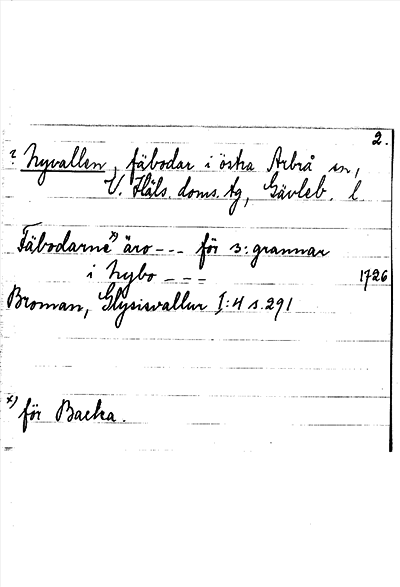 2.
? Nyvallen, fäbodar i östra Arbrå sn,
V. Häls. doms. tg, Gävleb. l
Fäbodarne x) äro --- för 3: grannar
i Nybo --- 1726
Broman, Glysisvallur I:4 s. 291
x) för Backa.